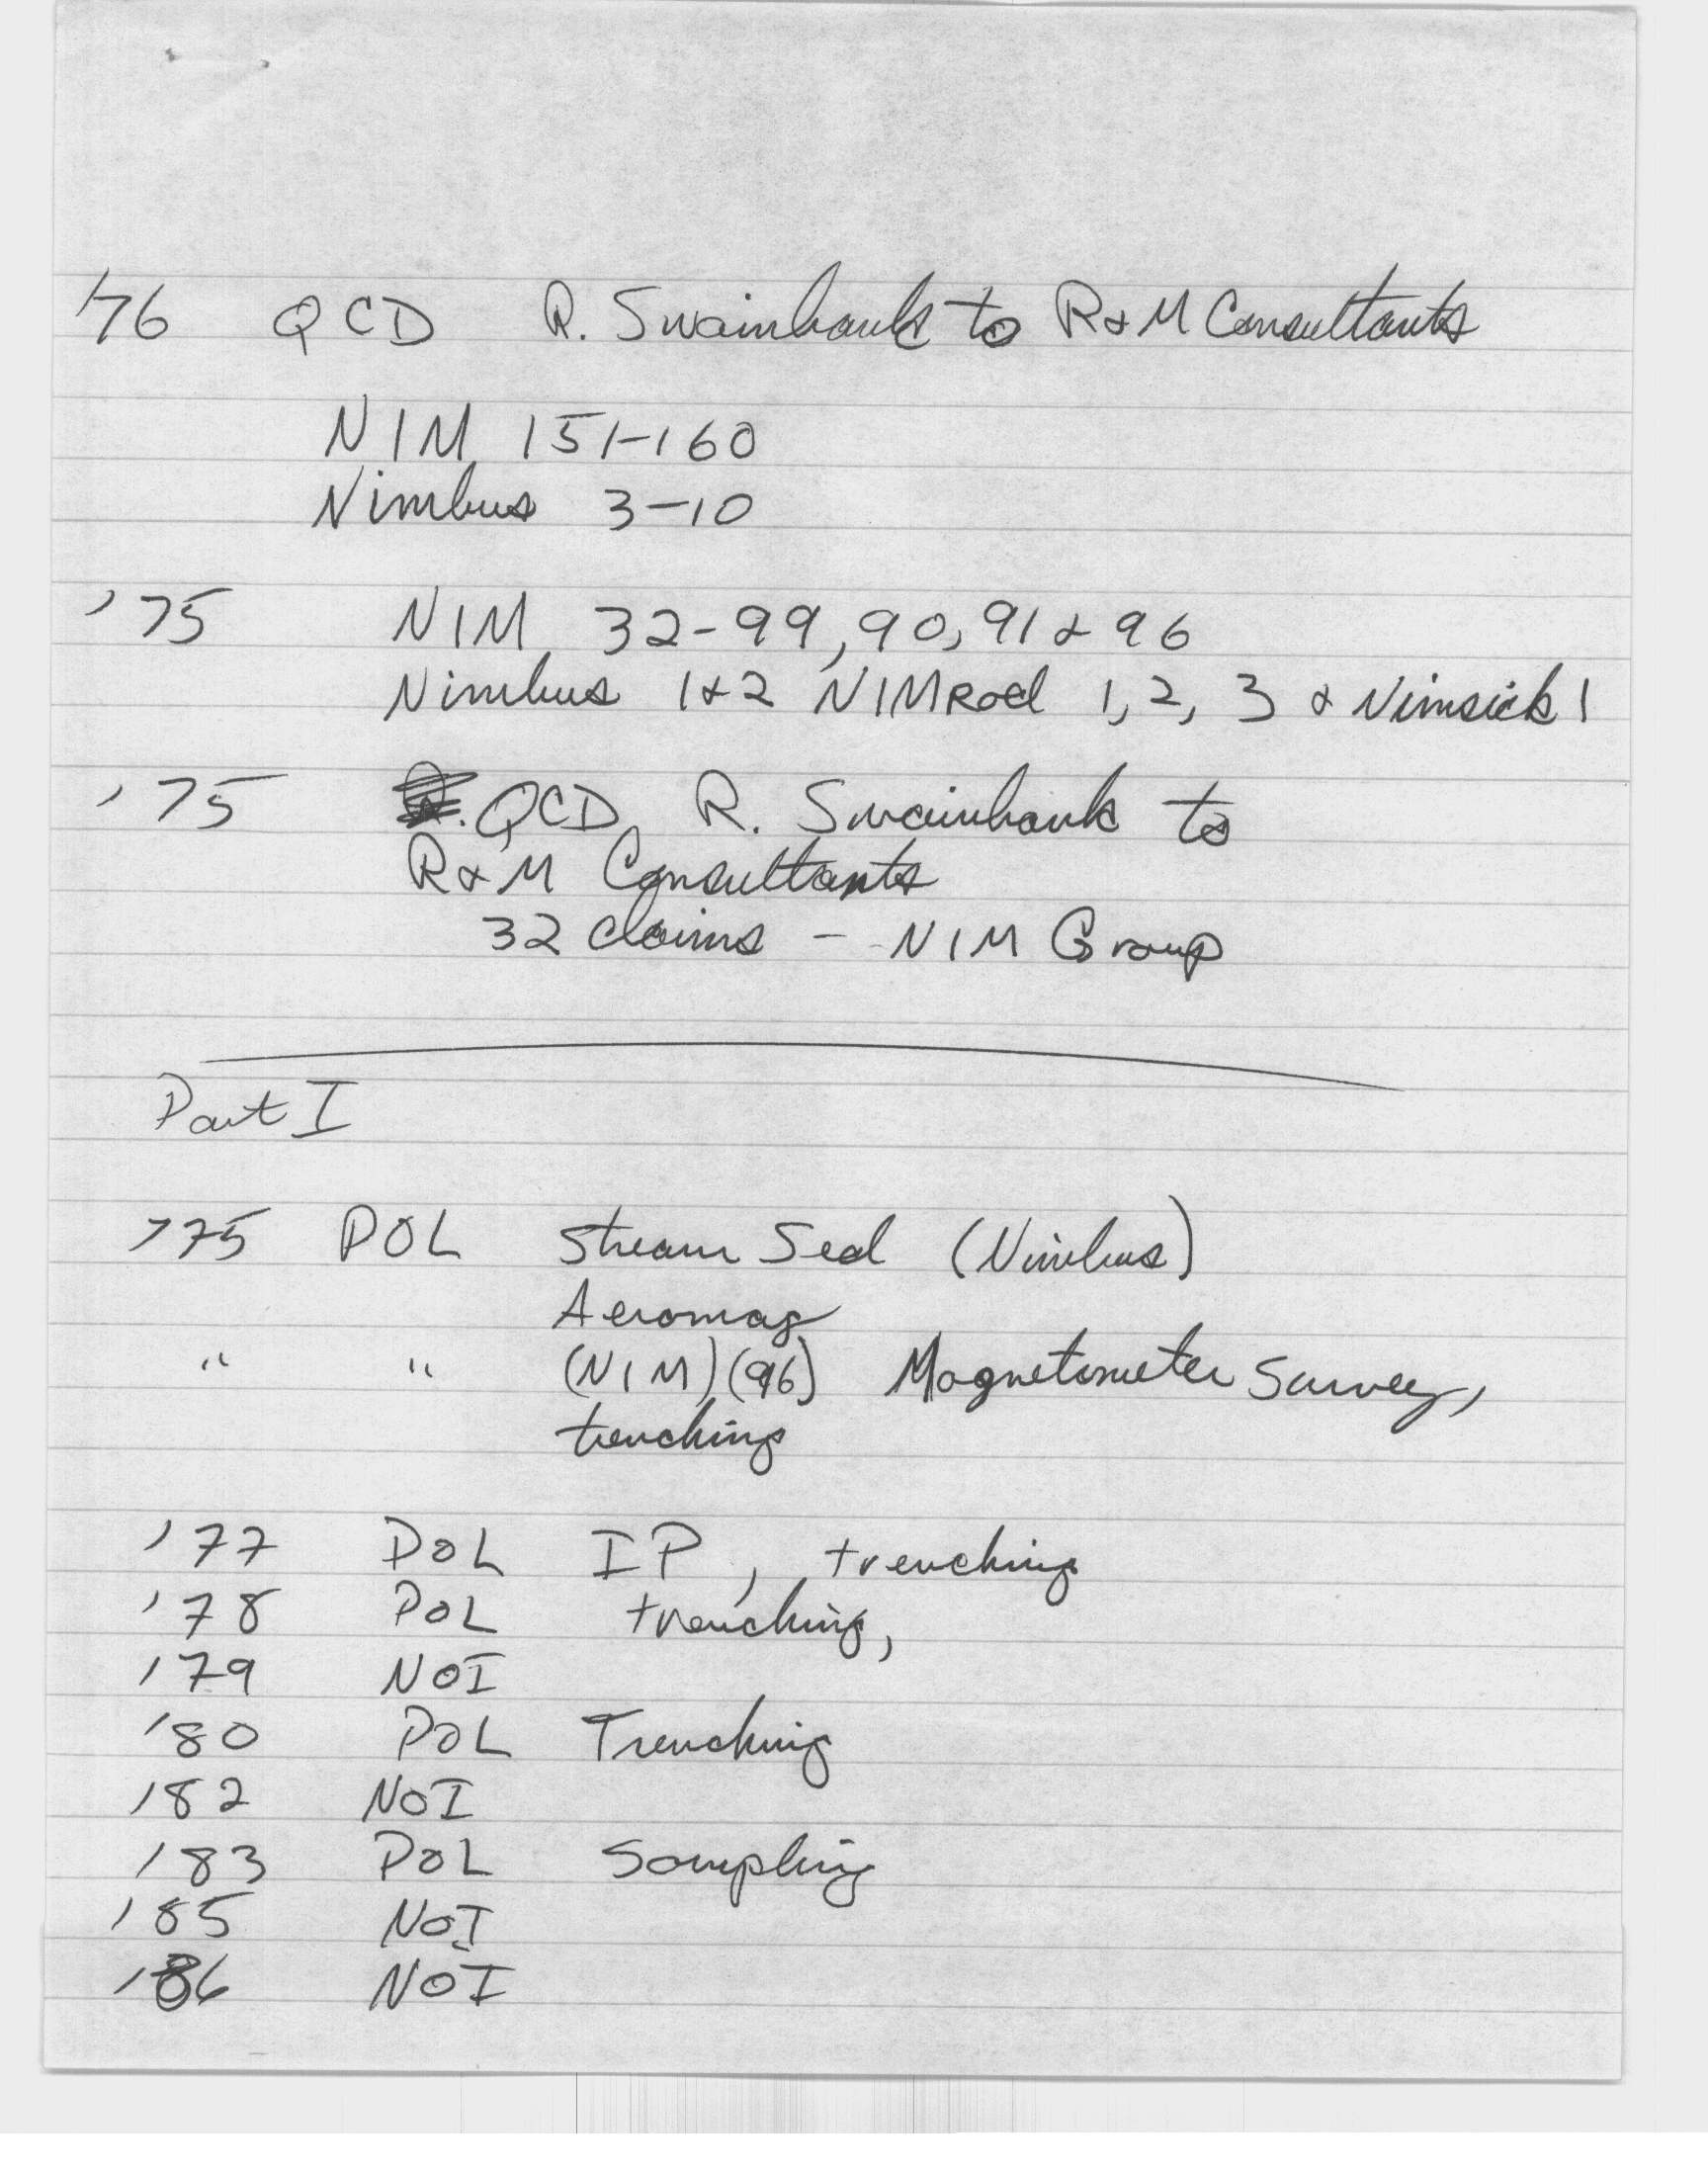 '76 QCD R. Swainbank to R&M Consultants
NIM 151-160
Nimbus 3-10
'75 NIM 32-99, 90, 91 & 96
Nimbus 1&2 NIMRod 1, 2, 3 & Nimsick 1
'75 QCD R. Swainbank to
R&M Consultants
32 claims - NIM Group
Part I
'75 POL Stream Sed (Nimbus)
Aeromag
" " (NIM) (96) Magnetometer Survey,
trenching
'77 POL IP, trenching
'78 POL trenching,
'79 NOI
'80 POL Trenching
'82 NOI
'83 POL Sampling
'85 NOI
'86 NOI